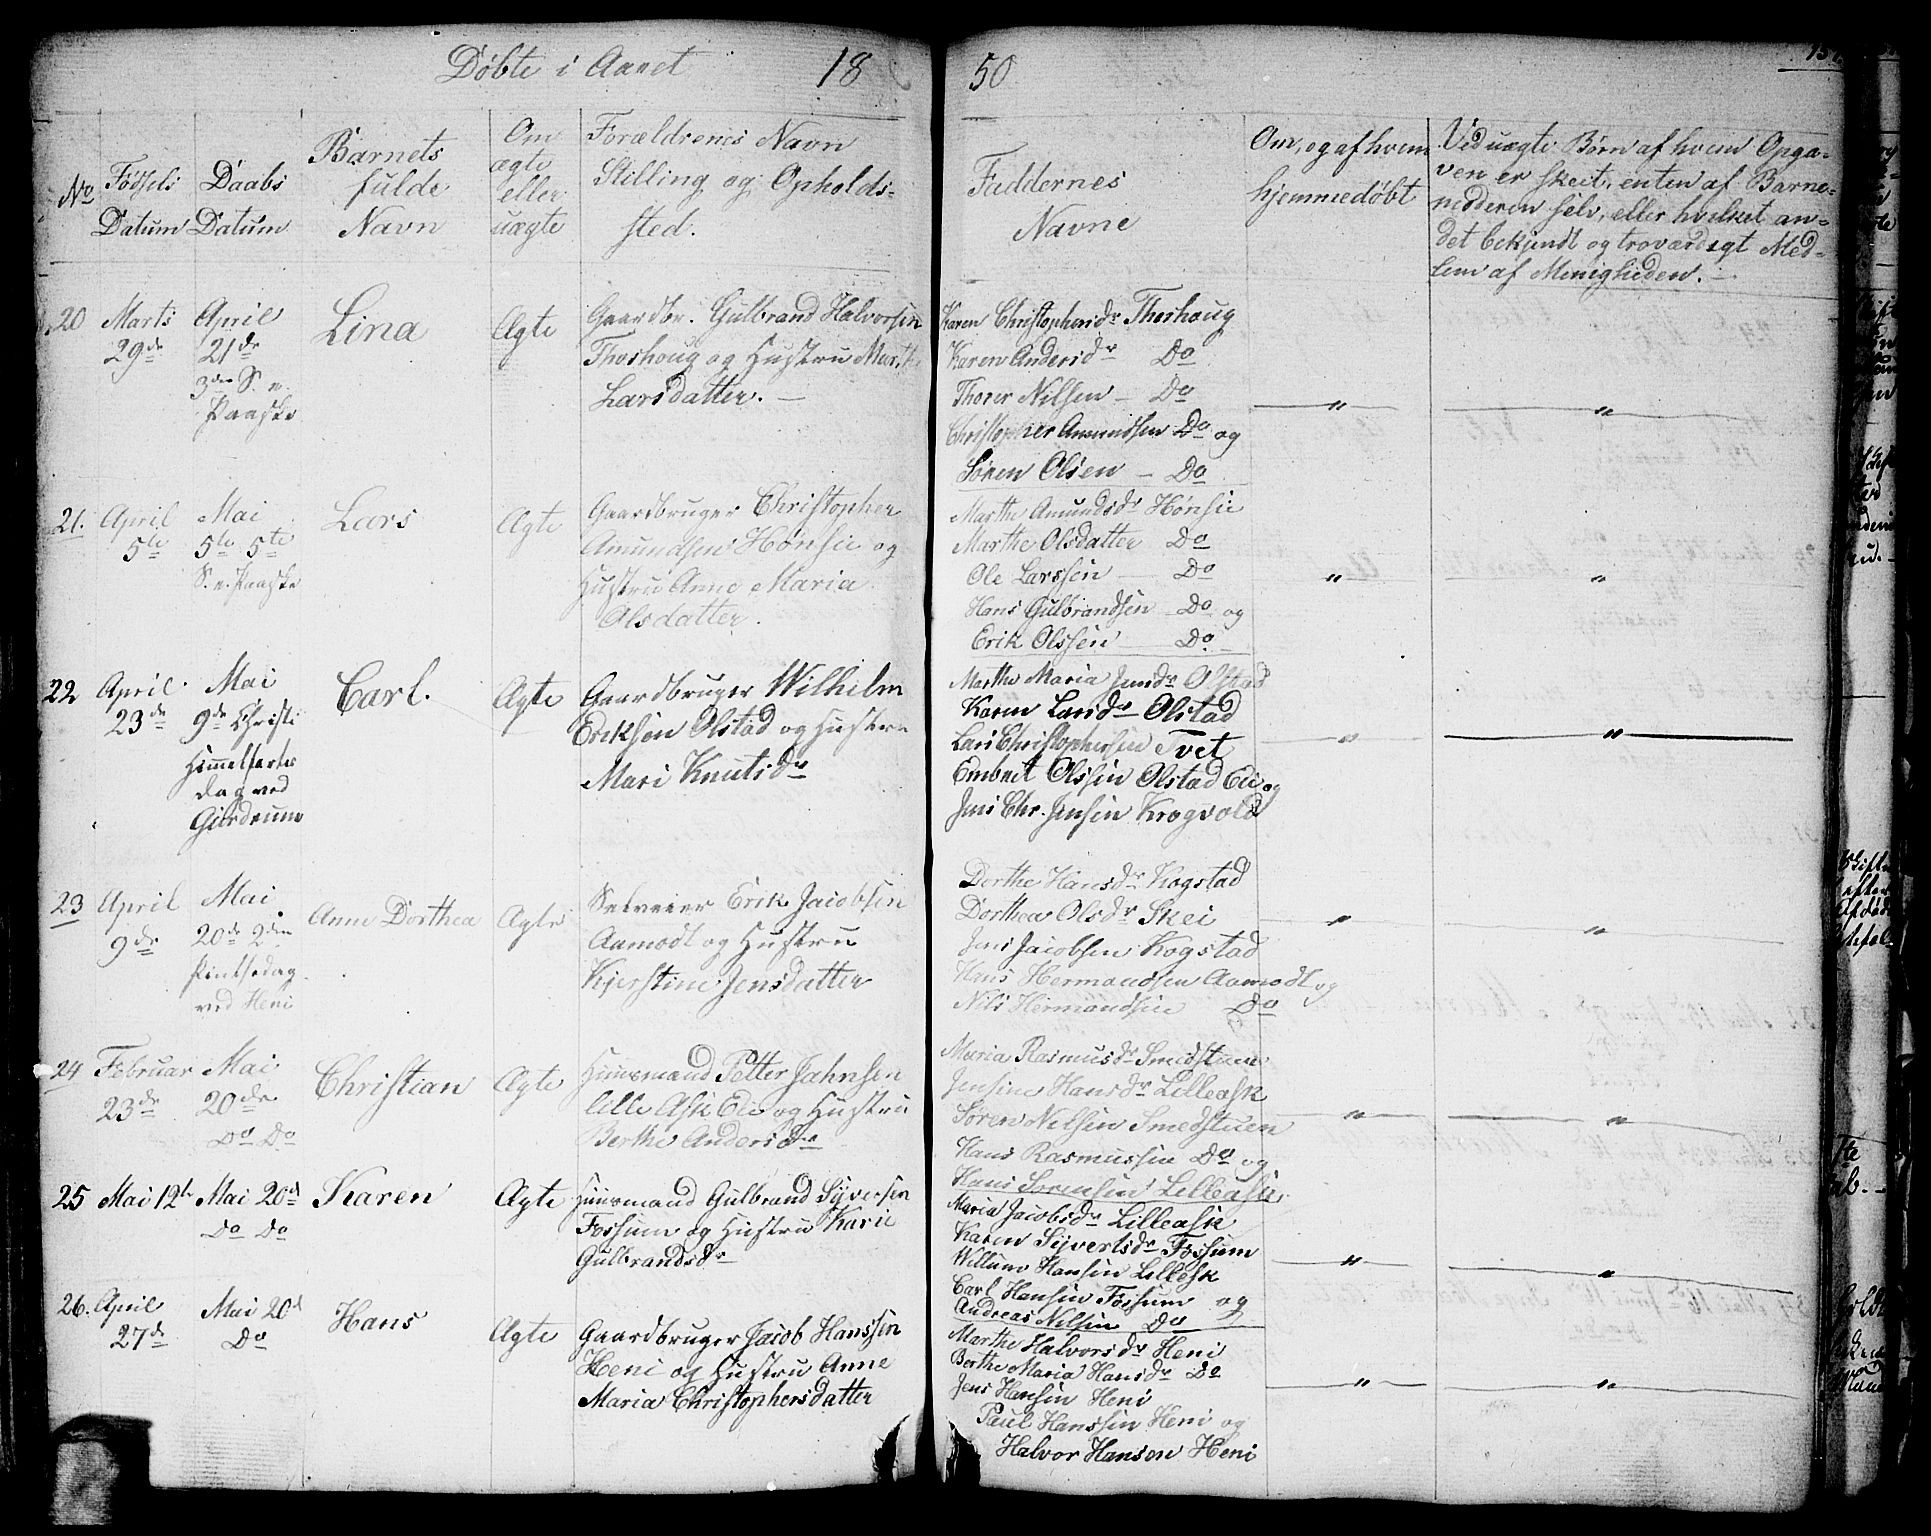 Døbte i Aaret 18
50
No
Fødsels
Datum
Daabs
Datum
Barnets
fulde
Navn
Om
ægte
eller
uægte
Forældrenes Navn
Stilling og Opholds-
sted.
Faddernes
Navne
Om, og af hvem
hjemmedøbt
Ved uægte Børn af hvem Opga-
ven er skeet, enten af Barne-
modderen selv, eller hvilket an-
det bekjendt og troværdigt Med-
lem af Menigheden.
20
Marts
29de
April
21de
3die S. e.
Paaske
Lina
Ægte
Gaardbr. Gulbrand Halvorsen
Thorhoug og Hustru Marthe
Larsdatter.
Karen Christophersdr Thorhoug
Karen Andersdr Do
Thorer Nilsen - Do
Christopher Amundsen Do og
Sören Olsen - Do
21.
April
5te
Mai
5te 5te
S. e. Paaske
Lars
Ægte
Gaardbruger Christopher
Amundsen Hønsie og
Hustru Anne Maria
Olsdatter.
Marthe Amundsdr Hønsie
Marthe Olsdatter Do
Ole Larssen - Do
Hans Gulbrandsen - Do og
Erik Olssen - Do
22
April
23de
Mai
9de Christi
Himmelfarts
dag ved
Gjerdrum
Carl.
Ægte
Gaardbruger Wilhelm
Eriksen Olstad og Hustru
Mari Knutsdr
Marthe Maria Jensdr Olstad
Karen Larsdr Olstad
Lars Christophersen Tvet
Embret Olssen Olstad Eie og
Jens Chr. Jensen Krogvold
23
April
9de
Mai
20de 2den
Pintsedag
ved Heni
Anne Dorthea
Ægte
Selveier Erik Jacobsen
Aamodt og Hustru
Kjerstine Jensdatter
Dorthe Hansdr Kogstad
Dorthea Olsdr Skei
Jens Jacobsen Kogstad
Hans Hermandsen Aamodt og
Nils Hermandsen Do
24
Februar
23de
Mai
20de
Do Do
Christian
Ægte
Huusmand Petter Jahnsen
lille Ask Eie og Hustru
Berthe Andersdr
Maria Rasmusdr Smedstuen
Jensine Hansdr Lilleask
Sören Nilsen Smedstuen
Hans Rasmussen Do og
Hans Sörensen Lilleask
25
Mai 12te
Mai 20d
Do Do
Karen
Ægte
Huusmand Gulbrand Syversen
Fossum og Hustru Karie
Gulbrandsdr
Maria Jacobsdr Lilleask
Karen Syvertsdr Fossum
Willum Hansen Lilleask
Carl Hansen Fossum og
Andreas Nilsen Do
26.
April
27de
Mai 20d
Do
Hans
Ægte
Gaardbruger Jacob Hanssen
Heni og Hustru Anne
Maria Christophersdatter
Marthe Halvorsdr Heni
Berthe Maria Hansdr Do
Jens Hansen Heni
Paul Hanssen Heni og
Halvor Hansen Heni